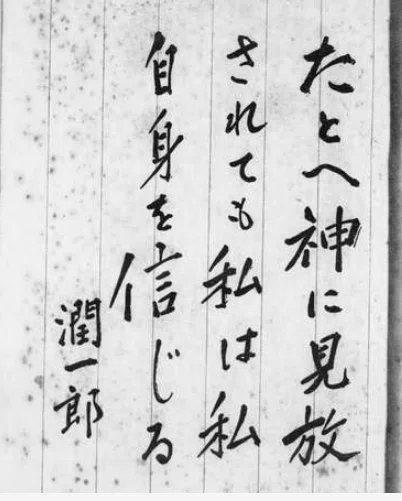 たとへ神に見放
されても私は私
自身を信じる
潤一郎